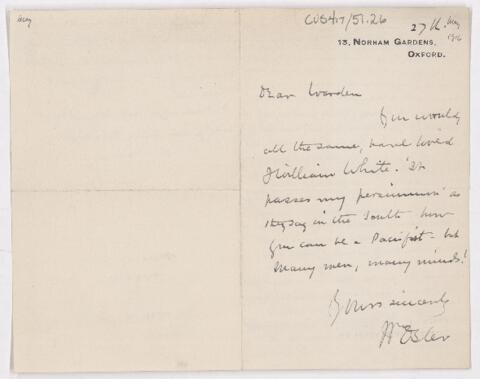 May
CUS417/51.26
27th. May
1916
13, NORHAM GARDENS,
OXFORD.
Dear Warden
You would
all the same, have loved
William White. 'It
passes my persimmon' as
they say in the South how
you can be a Pacifist - but
many men, many minds!
Yours sincerely
Wm Osler